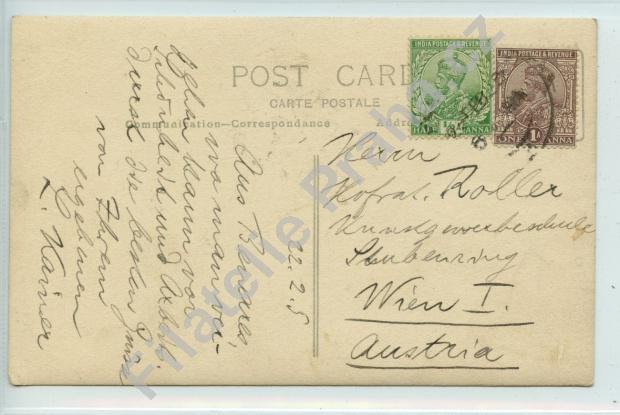 POST CARD
CARTE POSTALE
Communication—Correspondance
Address
INDIA POSTAGE & REVENUE
HALF ANNA
INDIA POSTAGE & REVENUE
1A
ONE ANNA
22.2.5
Aus Benares,
wo man vor
Schönheit und
durch die besten Grüsse
von Ihrem
ergebenen
L. Kainer
Herrn
Hofrat Roller
Kunstgewerbeschule
Stubenring
Wien I.
Austria
Filatelie Praha.cz